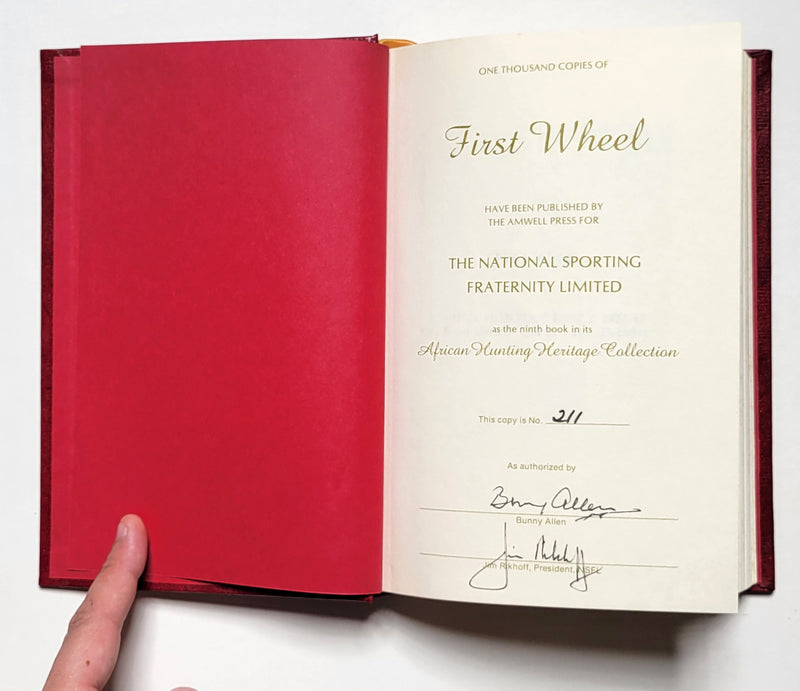 ONE THOUSAND COPIES OF
First Wheel
HAVE BEEN PUBLISHED BY
THE AMWELL PRESS FOR
THE NATIONAL SPORTING
FRATERNITY LIMITED
as the ninth book in its
African Hunting Heritage Collection
This copy is No. 211
As authorized by
Bunny Allen
Bunny Allen
Jim Rikhoff
Jim Rikhoff, President, NSFL